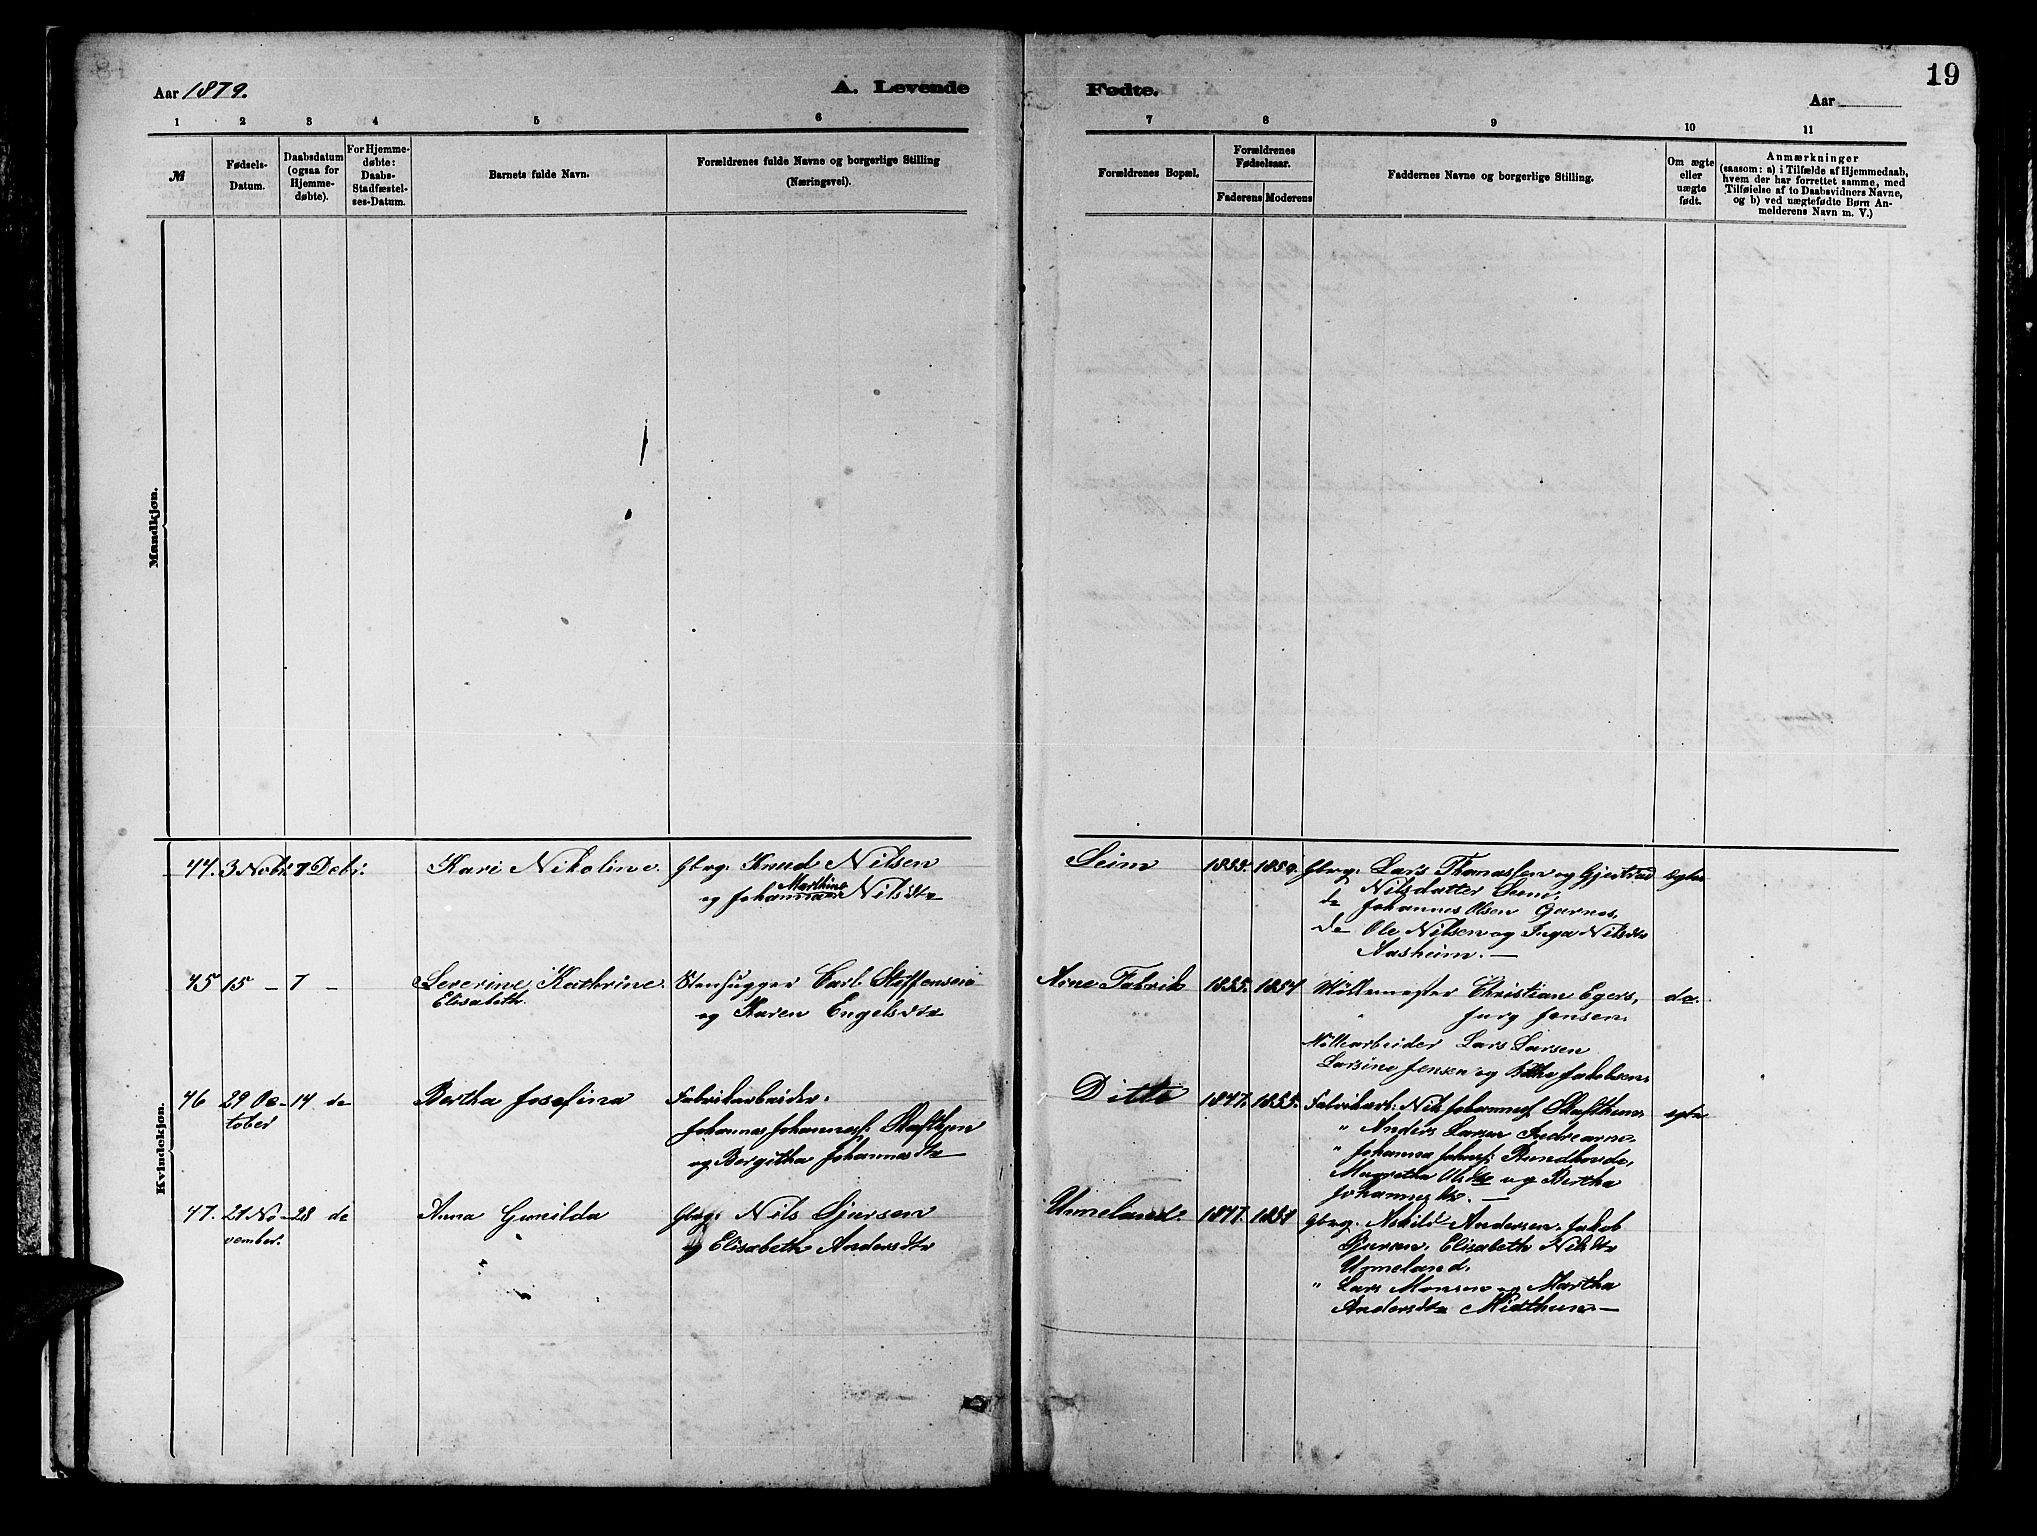 19
Aar 1879.
A. Levende
Fødte.
Aar
1 2 3 4 5 6
7 8 9 10 11
№
Fødsels-
Datum.
Daabsdatum
(ogsaa for
Hjemme-
døbte).
For Hjemme-
døbte:
Daabs-
Stadfæstel-
ses-Datum.
Barnets fulde Navn.
Forældrenes fulde Navne og borgerlige Stilling
(Næringsvei).
Forældrenes Bopæl.
Forældrenes
Fødselsaar.
Faderens Moderens
Faddernes Navne og borgerlige Stilling.
Om ægte
eller
uægte
født.
Anmærkninger
(saasom: a) i Tilfælde af Hjemmedaab,
hvem der har forrettet samme, med
Tilføielse af to Daabsvidners Navne,
og b) ved uægtefødte Børn An-
melderens Navn m. V.)
Mandkjøn.
Kvindekjøn.
44. 3 Nobr. 7 Debr.
Kari Nikoline.
Gbrg. Knud Nilsen
Marthine
og Johanna Nilsdtr
Seim
1859.
Gbrg. Lars Thomassen og Gjertrud
Nilsdatter Seim,
do Johannes Olsen Garnes,
do Ole Nilsen og Inga Nilsdtr
Aasheim. —
ægte
45 15 — 7 —
Severine Kathrine
Elisabeth.
Stenhugger Carl Steffensen
og Karen Engelsdtr
Arne Fabrik
1855. 1854
Møllemester Christian Egers,
" Jurg Jensen.
Møllearbeider Lars Larsen
Larsine Jensen og Jakobsen.
do.
46 29 Oc- 14 do
tober
Bertha Josefina
Fabrikarbeider
Johannes Johanness.
og Bergitha Johannesdtr
Ditto
1847. 1855.
Fabrikarb: Nils Johanness.
" Anders Larsen Indrearne.
" Johannes Johs. Rundhovde,
Magretha Olsdtr og Bertha
Johannesdtr. —
ægte
47. 21 No- 28 do
vember.
Anna Gunilda
Gbrg. Nils Sjursen
og Elisabeth Andersdtr
Unneland.
1847. 1851
Gbrg. Askild Andersen. Jakob
Sjursen, Elisabeth Nilsdtr
Unneland.
" Lars Monsen og Martha
Andersdtr Midthun. —